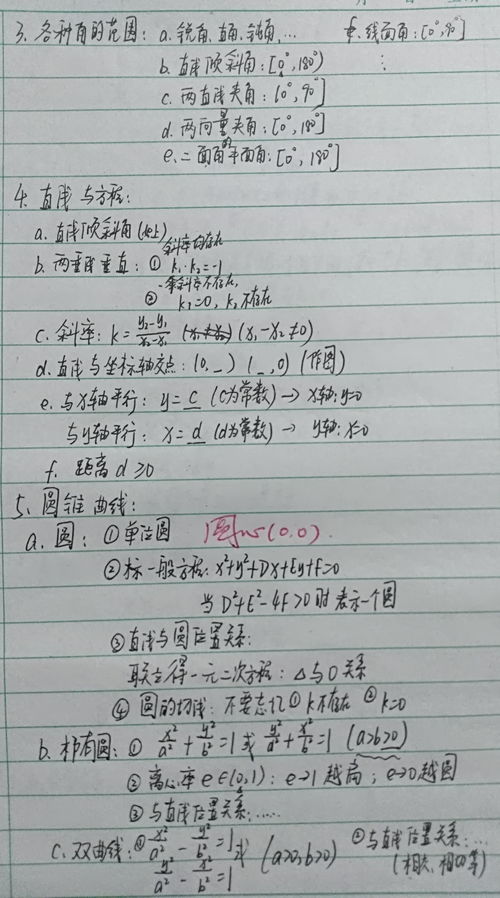 3. 各种角的范围: a. 锐角、直角、钝角、... f. 线面角: [0°, 90°]
b. 直线倾斜角: [0°, 180°) ⋮
c. 两直线夹角: [0°, 90°]
d. 两向量夹角: [0°, 180°]
e. 二面角的平面角: [0°, 180°]
4. 直线与方程:
a. 直线倾斜角 (如上)
b. 两直线垂直: ① 斜率均存在 k₁·k₂=-1
② 一条斜率不存在, k₁=0, k₂不存在
c. 斜率: k = (y₂-y₁)/(x₂-x₁) (x₁≠x₂) (x₁-x₂≠0)
d. 直线与坐标轴交点: (0, _) (_, 0) (作图)
e. 与x轴平行: y = c (c为常数) → x轴: y=0
与y轴平行: x = d (d为常数) → y轴: x=0
f. 距离 d ≥ 0
5. 圆锥曲线:
a. 圆: ① 单位圆 圆心(0,0).
② 标一般方程: x²+y²+Dx+Ey+F=0
当 D²+E²-4F>0 时表示一个圆
③ 直线与圆位置关系:
联立得一元二次方程: △与0关系
④ 圆的切线: 不要忘记 ① k不存在 ② k=0
b. 椭圆: ① x²/a² + y²/b² = 1 或 y²/a² + x²/b² = 1 (a>b>0)
② 离心率 e∈(0,1): e→1 越扁; e→0 越圆
③ 与直线位置关系: ......
c. 双曲线: ① x²/a² - y²/b² = 1 或 (a>0, b>0) ② 与直线位置关系: ...
y²/a² - x²/b² = 1 (相交、相切等)